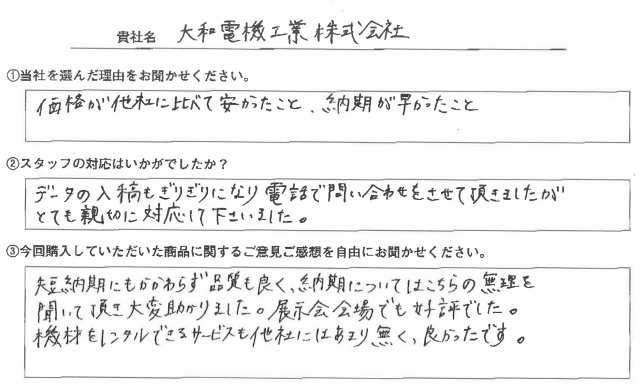 貴社名 大和電機工業株式会社
①当社を選んだ理由をお聞かせください。
価格が他社に比べて安かったこと、納期が早かったこと
②スタッフの対応はいかがでしたか？
データの入稿もぎりぎりになり電話で問い合わせをさせて頂きましたが
とても親切に対応して下さいました。
③今回購入していただいた商品に関するご意見ご感想を自由にお聞かせください。
短納期にもかかわらず品質も良く、納期についてはこちらの無理を
聞いて頂き大変助かりました。展示会会場でも好評でした。
機材をレンタルできるサービスも他社にはあまり無く、良かったです。